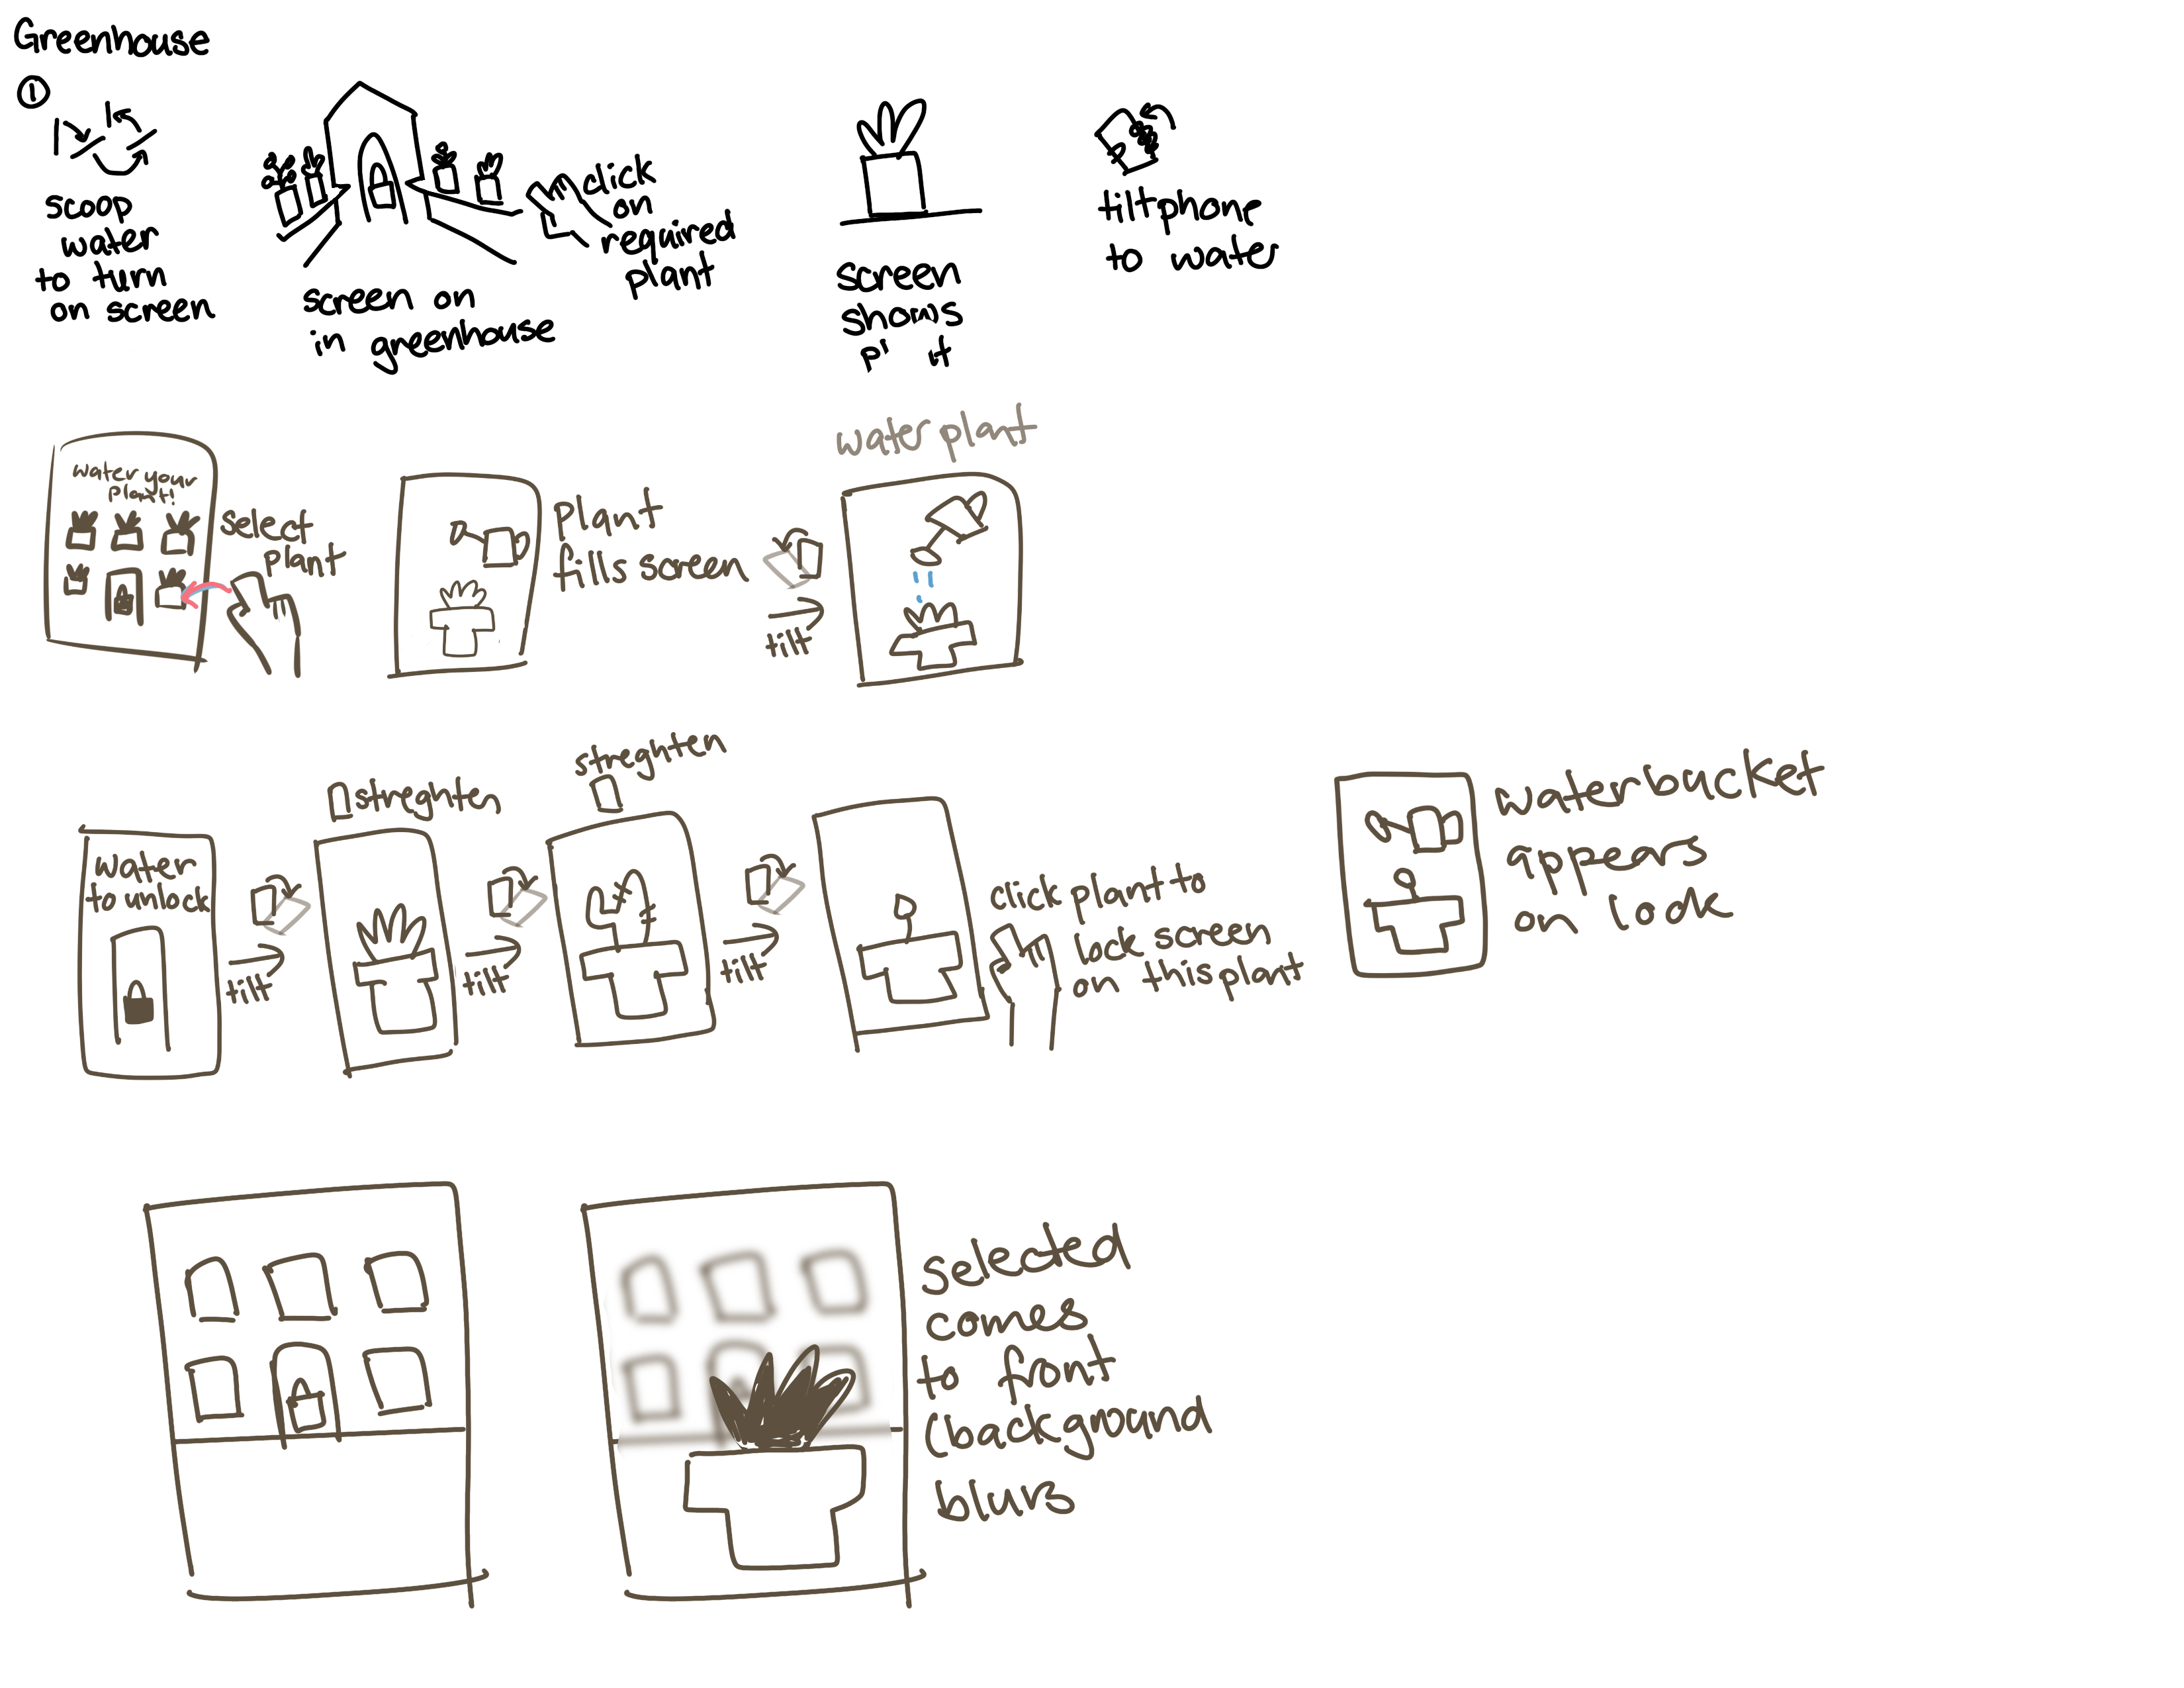 Greenhouse
1
scoop
water
to turn
on screen
screen on
in greenhouse
click
on
required
plant
screen
shows
tilt phone
to water
water your
plant!
select
plant
Plant
fills screen
tilt
water plant
water
to unlock
tilt
streghten
tilt
streghten
tilt
click plant to
lock screen
on this plant
waterbucket
appears
on look
selected
comes
to front
(background
blurs